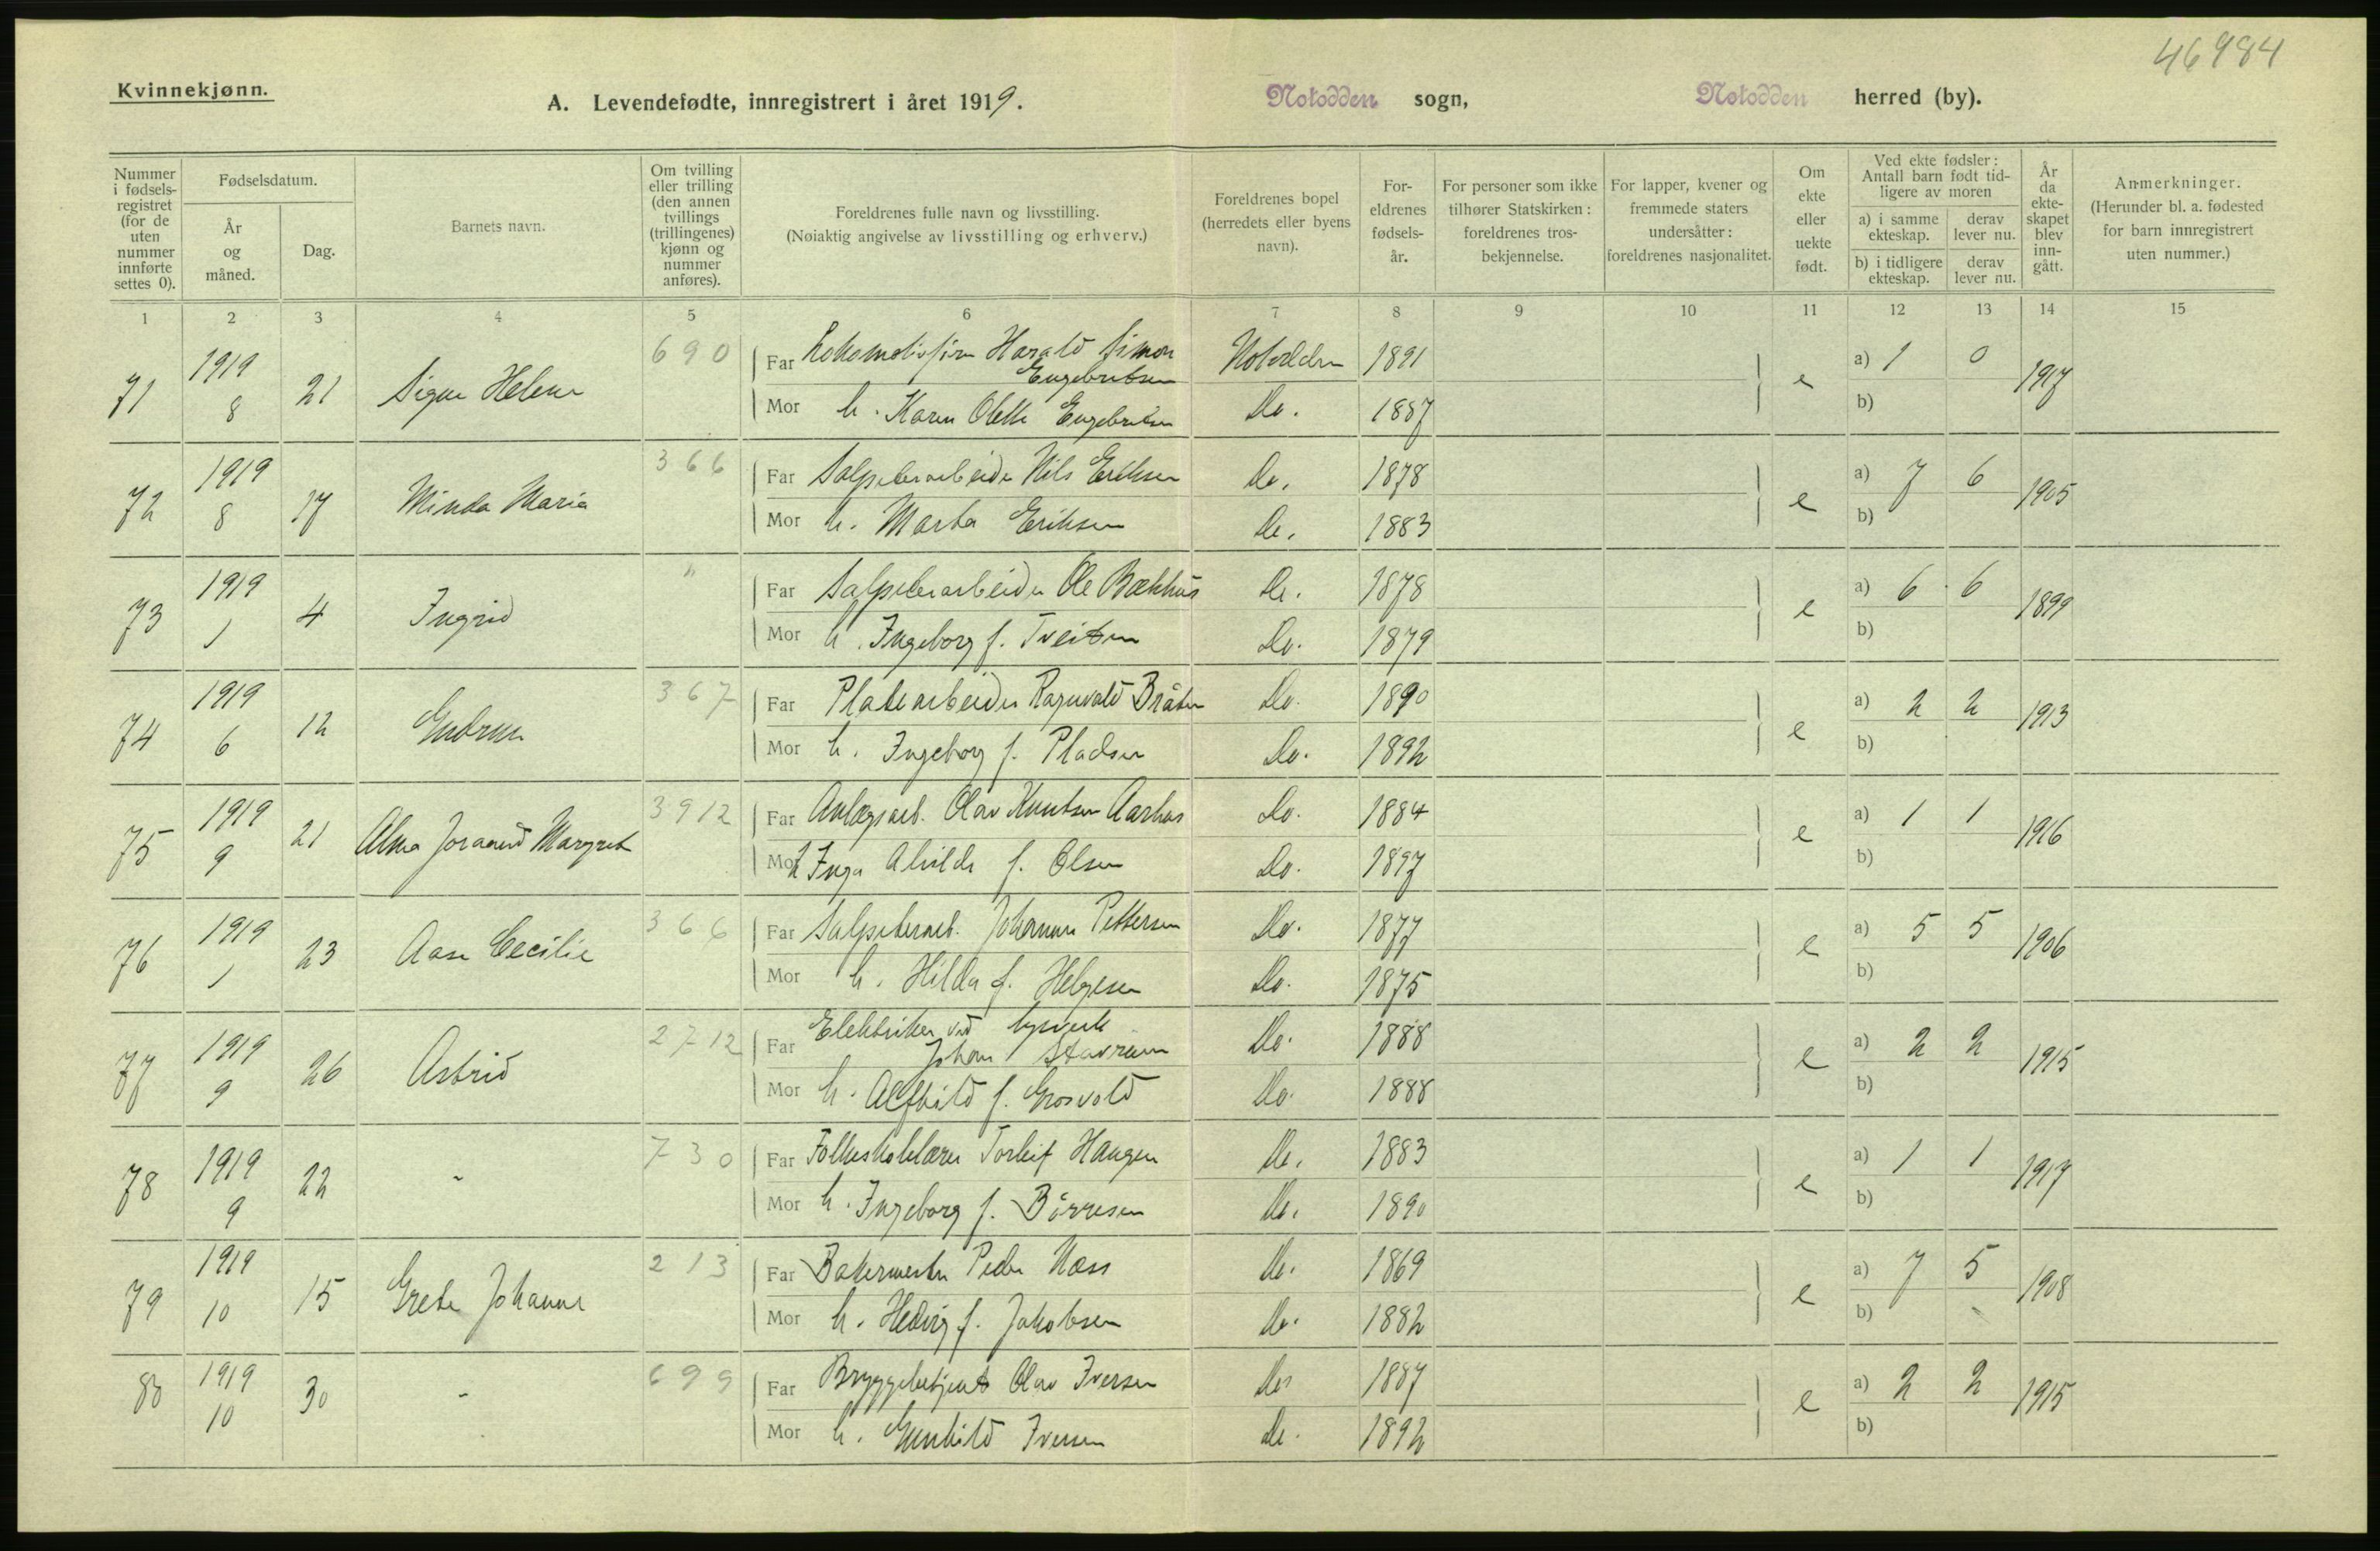 46984
Kvinnekjønn.
A. Levendefødte, innregistrert i året 1919.
Notodden sogn,
Notodden herred (by).
Nummer i fødsels-registret (for de uten nummer innførte settes 0).
Fødselsdatum.
År og måned.
Dag.
Barnets navn.
Om tvilling eller trilling (den annen tvillings (trillingenes) kjønn og nummer anføres).
Foreldrenes fulle navn og livsstilling.
(Nøiaktig angivelse av livsstilling og erhverv.)
Foreldrenes bopel (herredets eller byens navn).
For-eldrenes fødsels-år.
For personer som ikke tilhører Statskirken: foreldrenes tros-bekjennelse.
For lapper, kvener og fremmede staters undersåtter: foreldrenes nasjonalitet.
Om ekte eller uekte født.
Ved ekte fødsler: Antall barn født tid-ligere av moren
a) i samme ekteskap.
derav lever nu.
b) i tidligere ekteskap.
derav lever nu.
År da ekte-skapet blev inn-gått.
Anmerkninger.
(Herunder bl. a. fødested for barn innregistrert uten nummer.)
1 2 3 4 5 6 7 8 9 10 11 12 13 14 15
71 1919 8 21 Signe Helene 690
Far Harald Simon Engebretsen Notodden 1891 e a) 1 0 1917
Mor h. Karen Olette Engebretsen Do. 1887 b)
72 1919 8 17 Minda Maria 366
Far Salpeterarbeider Nils Eriksen Do. 1878 e a) 7 6 1905
Mor h. Marta Eriksen Do. 1883 b)
73 1919 1 4 Ingrid "
Far Salpeterarbeider Ole Bækhus Do. 1878 e a) 6 6 1899
Mor h. Ingeborg f. Tveiten Do. 1879 b)
74 1919 6 12 Gudrun 367
Far Platearbeider Ragnvald Bråten Do. 1890 e a) 2 2 1913
Mor h. Ingeborg f. Pladsen Do. 1892 b)
75 1919 9 21 Alma Joraand Margret 3912
Far Anlægsarb. Olav Knutsen Aarhus Do. 1884 e a) 1 1 1916
Mor h Inga Alvilde f. Olsen Do. 1897 b)
76 1919 1 23 Aase Cecilie 366
Far Salpeterarb. Johannes Pettersen Do. 1877 e a) 5 5 1906
Mor h. Hilda f. Helgesen Do. 1875 b)
77 1919 9 26 Astrid 2712
Far Elektriker ved lysverk
Johan Stavrum Do. 1888 e a) 2 2 1915
Mor h. Alfhild f. Grosvold Do. 1888 b)
78 1919 9 22 - 730
Far Folkeskolelærer Torleif Haugen Do. 1883 e a) 1 1 1917
Mor h. Ingeborg f. Børresen Do. 1890 b)
79 1919 10 15 Grete Johanne 213
Far Bakermester Peder Næss Do. 1869 e a) 7 5 1908
Mor h. Hedvig f. Jakobsen Do. 1882 b)
80 1919 10 30 - 699
Far Bryggebetjent Olav Iversen Do. 1887 e a) 2 2 1915
Mor h. Gunhild Iversen Do. 1892 b)